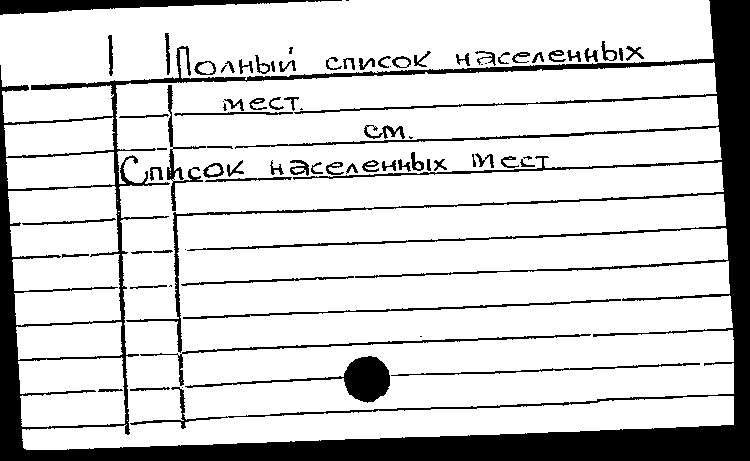 Полный список населенных
мест.
см.
Список населенных мест